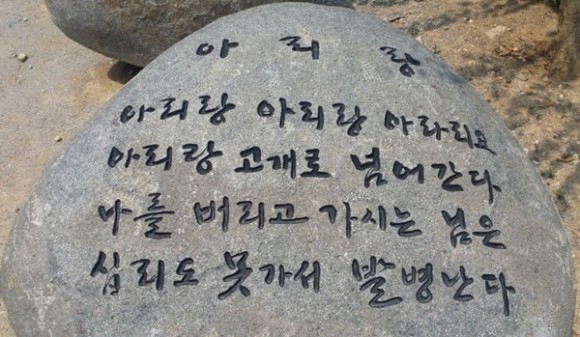 아 리 랑
아리랑 아리랑 아라리요
아리랑 고개로 넘어간다
나를 버리고 가시는 님은
십리도 못가서 발병난다